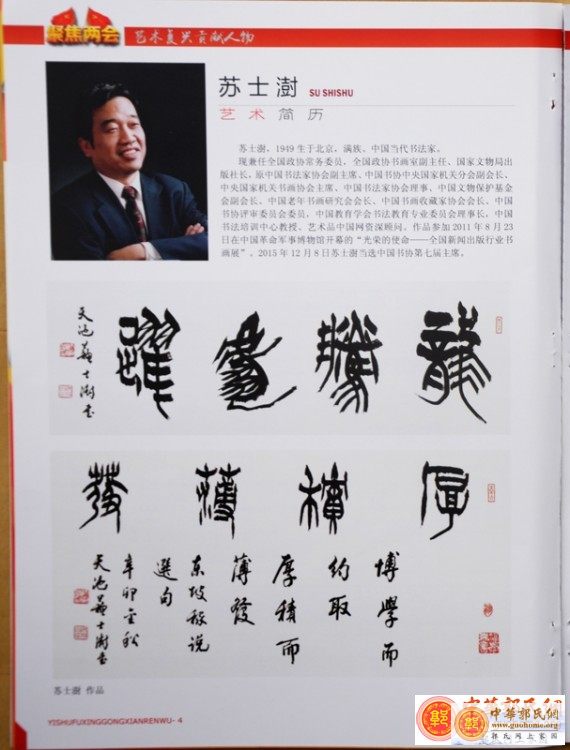 聚焦两会 艺术复兴贡献人物
苏士澍 SU SHISHU
艺术简历
苏士澍，1949 生于北京，满族、中国当代书法家。
现兼任全国政协常务委员，全国政协书画室副主任、国家文物局出
版社长，原中国书法家协会副主席、中国书协中央国家机关分会副会长、
中央国家机关书画协会主席、中国书法家协会理事、中国文物保护基金
会副会长、中国老年书画研究会会长、中国书画收藏家协会会长、中国
书协评审委员会委员，中国教育学会书法教育专业委员会理事长，中国
书法培训中心教授、艺术品中国网资深顾问。作品参加 2011 年 8 月 23
日在中国革命军事博物馆开幕的“光荣的使命——全国新闻出版行业书
画展”。2015 年 12 月 8 日苏士澍当选中国书协第七届主席。
龍騰為躍
天池蘇士澍書
厚積薄發
博學而
约取
厚積而
薄發
东坡稼说
選句
辛卯金秋
天池蘇士澍書
苏士澍 作品
YISHUFUXINGGONGXIANRENWU· 4
中華郭氏網
郭
中華郭氏網
www.guohome.org
郭氏网上家园